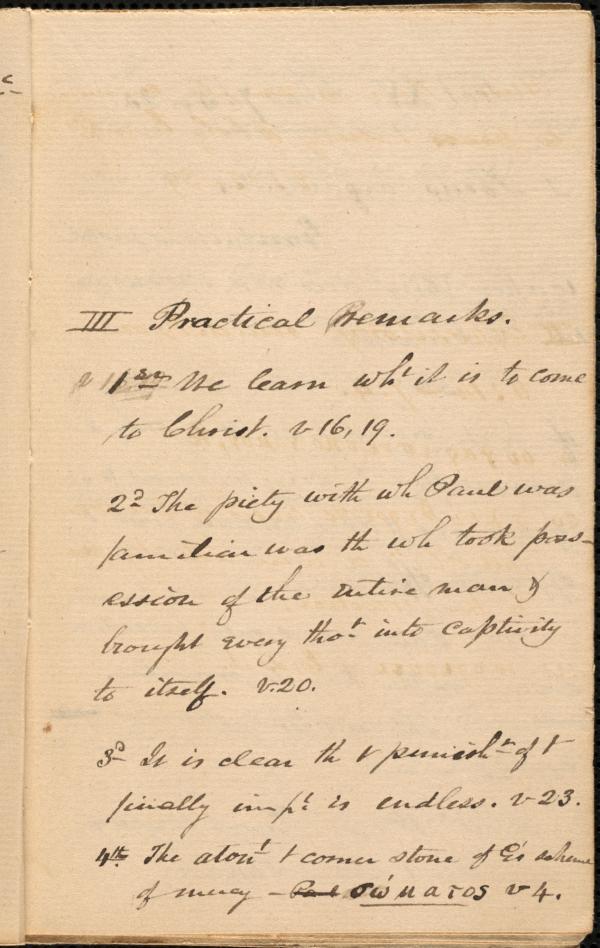 III Practical Remarks.
1st We learn wht it is to come
to Christ. v 16, 19.
2d The piety with wh Paul was
familiar was th wh took poss-
ession of the entire man &
brought every thot into captivity
to itself. v.20.
3d It is clear th t punisht of t
finally impt is endless. v 23.
4th The atont t corner stone of G's scheme
of mercy - σώματος v 4.